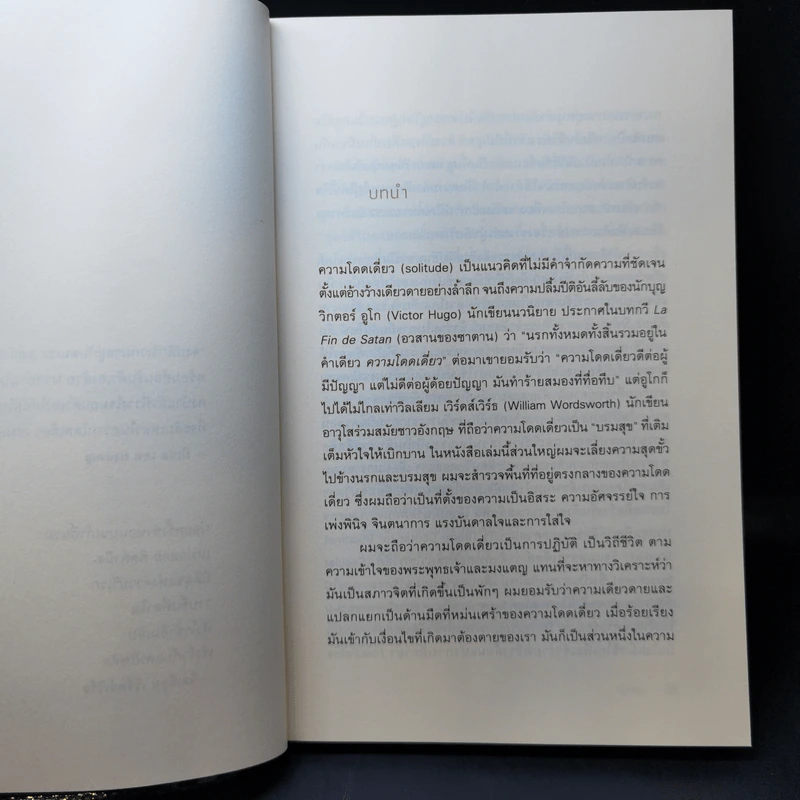 บทนำ
ความโดดเดี่ยว (solitude) เป็นแนวคิดที่ไม่มีคำจำกัดความที่ชัดเจน
ตั้งแต่อ้างว้างเดียวดายอย่างล้ำลึก จนถึงความปลื้มปีติอันลี้ลับของนักบุญ
วิกตอร์ อูโก (Victor Hugo) นักเขียนนวนิยาย ประกาศในบทกวี La
Fin de Satan (อวสานของซาตาน) ว่า “นรกทั้งหมดทั้งสิ้นรวมอยู่ใน
คำเดียว ความโดดเดี่ยว” ต่อมาเขายอมรับว่า “ความโดดเดี่ยวดีต่อผู้
มีปัญญา แต่ไม่ดีต่อผู้ด้อยปัญญา มันทำร้ายสมองที่ทื่อทึบ” แต่อูโกก็
ไปได้ไม่ไกลเท่าวิลเลียม เวิร์ดส์เวิร์ธ (William Wordsworth) นักเขียน
อาวุโสร่วมสมัยชาวอังกฤษ ที่ถือว่าความโดดเดี่ยวเป็น “บรมสุข” ที่เติม
เต็มหัวใจให้เบิกบาน ในหนังสือเล่มนี้ส่วนใหญ่ผมจะเลี่ยงความสุดขั้ว
ไปข้างนรกและบรมสุข ผมจะสำรวจพื้นที่ที่อยู่ตรงกลางของความโดด
เดี่ยว ซึ่งผมถือว่าเป็นที่ตั้งของความเป็นอิสระ ความอัศจรรย์ใจ การ
เพ่งพินิจ จินตนาการ แรงบันดาลใจและการใส่ใจ
ผมจะถือว่าความโดดเดี่ยวเป็นการปฏิบัติ เป็นวิถีชีวิต ตาม
ความเข้าใจของพระพุทธเจ้าและมงแตญ แทนที่จะหาทางวิเคราะห์ว่า
มันเป็นสภาวจิตที่เกิดขึ้นเป็นพักๆ ผมยอมรับว่าความเดียวดายและ
แปลกแยกเป็นด้านมืดที่หม่นเศร้าของความโดดเดี่ยว เมื่อร้อยเรียง
มันเข้ากับเงื่อนไขที่เกิดมาต้องตายของเรา มันก็เป็นส่วนหนึ่งในความ